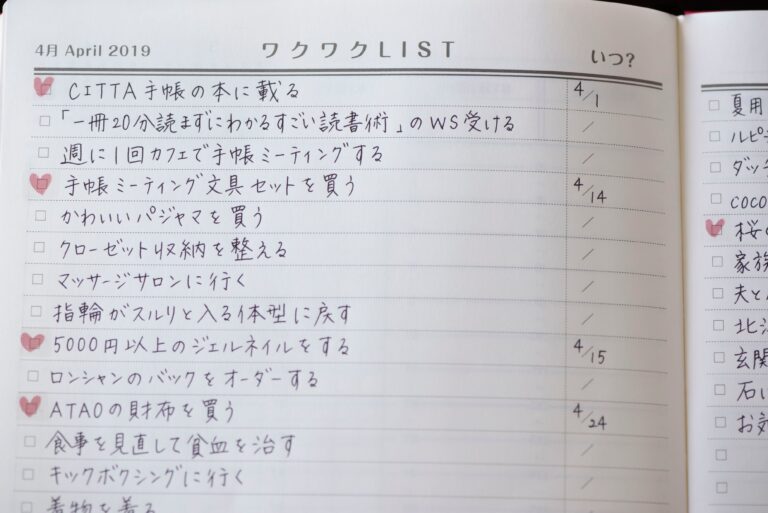 4月 April 2019 ワクワクLIST いつ?
CITTA手帳の本に載る 4/1
「一冊20分読まずにわかるすごい読書術」のWS受ける /
週に1回カフェで手帳ミーティングする /
手帳ミーティング文具セットを買う 4/14
かわいいパジャマを買う /
クローゼット収納を整える /
マッサージサロンに行く /
指輪がスルリと入る体型に戻す /
5000円以上のジェルネイルをする 4/15
ロンシャンのバックをオーダーする /
ATAOの財布を買う 4/24
食事を見直して貧血を治す /
キックボクシングに行く /
着物を着る
夏用
ルピシ
ダッ
COCO
桜の
家族
夫と
北海
玄関
石い
お気